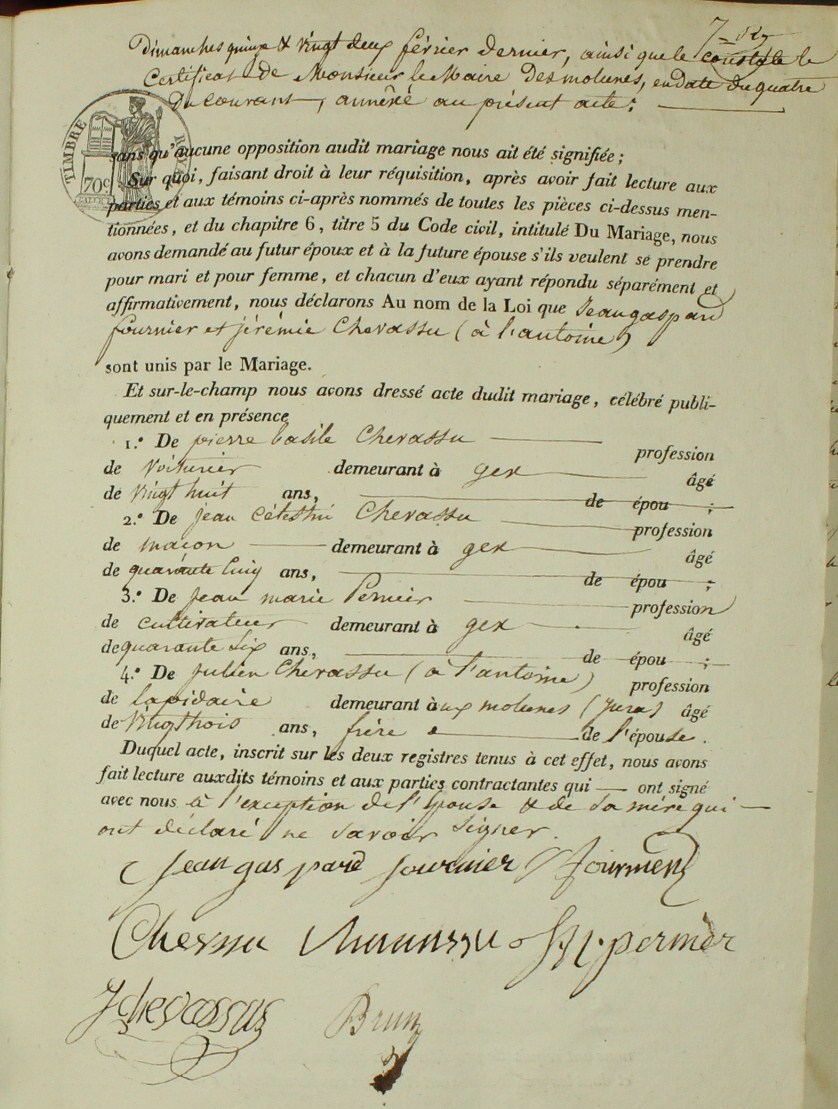 Dimanches quinze & vingt deux février dernier, ainsi que le constate le
Certificat de Monsieur le Maire Des molunes, en date du quatre
Du courant, annéxé au présent acte;
TIMBRE
70c
sans qu'aucune opposition audit mariage nous ait été signifiée ;
Sur quoi, faisant droit à leur réquisition, après avoir fait lecture aux
parties et aux témoins ci-après nommés de toutes les pièces ci-dessus men-
tionnées, et du chapitre 6, titre 5 du Code civil, intitulé Du Mariage, nous
avons demandé au futur époux et à la future épouse s'ils veulent se prendre
pour mari et pour femme, et chacun d'eux ayant répondu séparément et
affirmativement, nous déclarons Au nom de la Loi que Jean gaspard
fournier et jérémie Chevassu (à l'antoine)
sont unis par le Mariage.
Et sur-le-champ nous avons dressé acte dudit mariage, célébré publi-
quement et en présence
1.° De pierre basile Chevassu profession
de voiturier demeurant à gex âgé
de vingt huit ans, de épou ;
2.° De jean Célestin Chevassu profession
de maçon demeurant à gex âgé
de quarante Cinq ans, de épou ;
3.° De jean marie Pernier profession
de cultivateur demeurant à gex âgé
de quarante six ans, de épou ;
4.° De julien Chevassu (à l'antoine) profession
de lapidaire demeurant aux molunes (jura) âgé
de vingt trois ans, frère de l'épouse.
Duquel acte, inscrit sur les deux registres tenus à cet effet, nous avons
fait lecture auxdits témoins et aux parties contractantes qui ont signé
avec nous à l'exception de l'épouse & de sa mère qui
ont déclaré ne savoir signer.
Jean gaspard fournier fournier
Chevassu J M pernier
J chevassus Brun